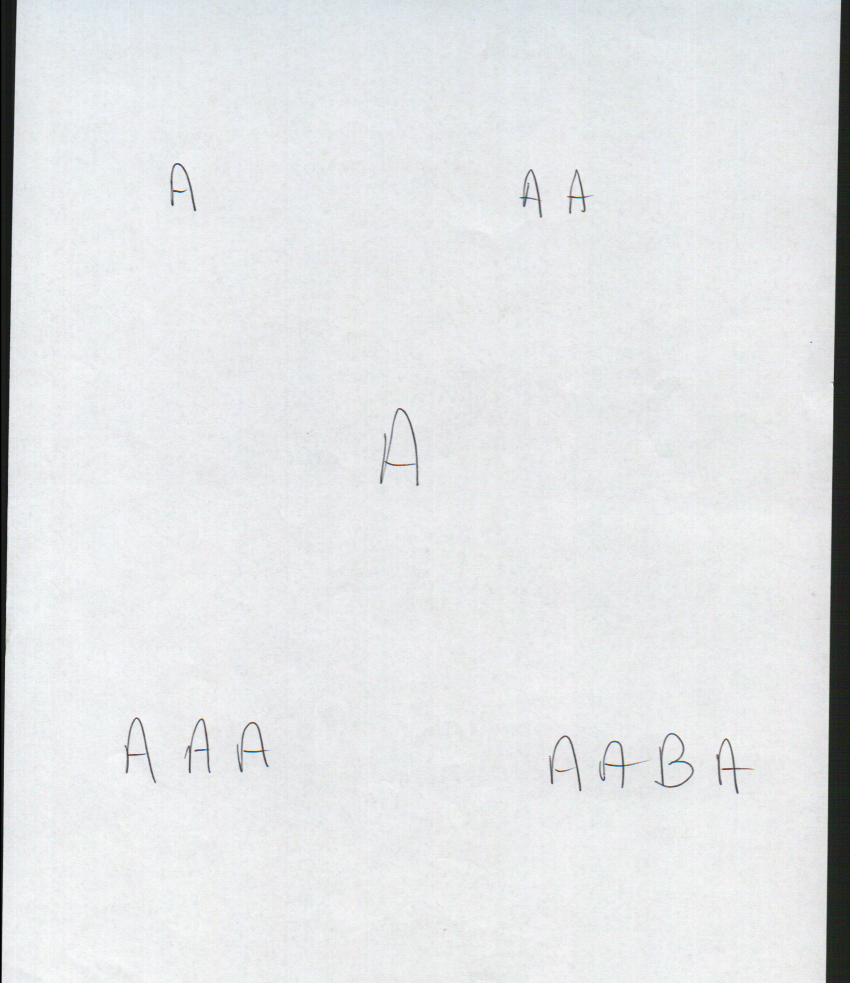 A A A
A
A A A A A B A